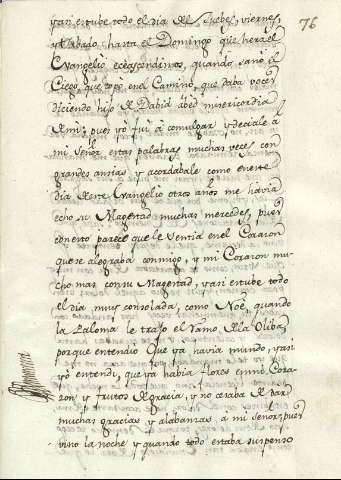 76
yasi estube todo el dia del Juebes, viernes,
y Sabado, hasta el Domingo que hera el
Evangelio ecce ascendimos, quando sano a
Ciego, que topo en el Camino, que daba voces
diciendo hijo de Dabid abed misericordia
de mi; pues yo fui à comulgar y deciale à
mi Señor estas palabras muchas veces con
grandes ansias y acordabale como en este
dia de este Evangelio otros años me havia
echo su Magestad muchas mercedes, pues
con esto parece que le sentia en el Corazon
que se alegraba conmigo, y mi Corazon mu-
cho mas con su Magestad, y asi estube todo
el dia muy consolada, como Noê, quando
la Paloma le trajo el Ramo de la Oliba,
porque entendio que ya havia mundo, y asi
yo entendi, que ya habia flores en mi Cora-
zon y frutos de gracia, y no cesaba de dar
muchas gracias y alabanzas a mi Señor; pues
vino la noche y quando todo estaba suspenso